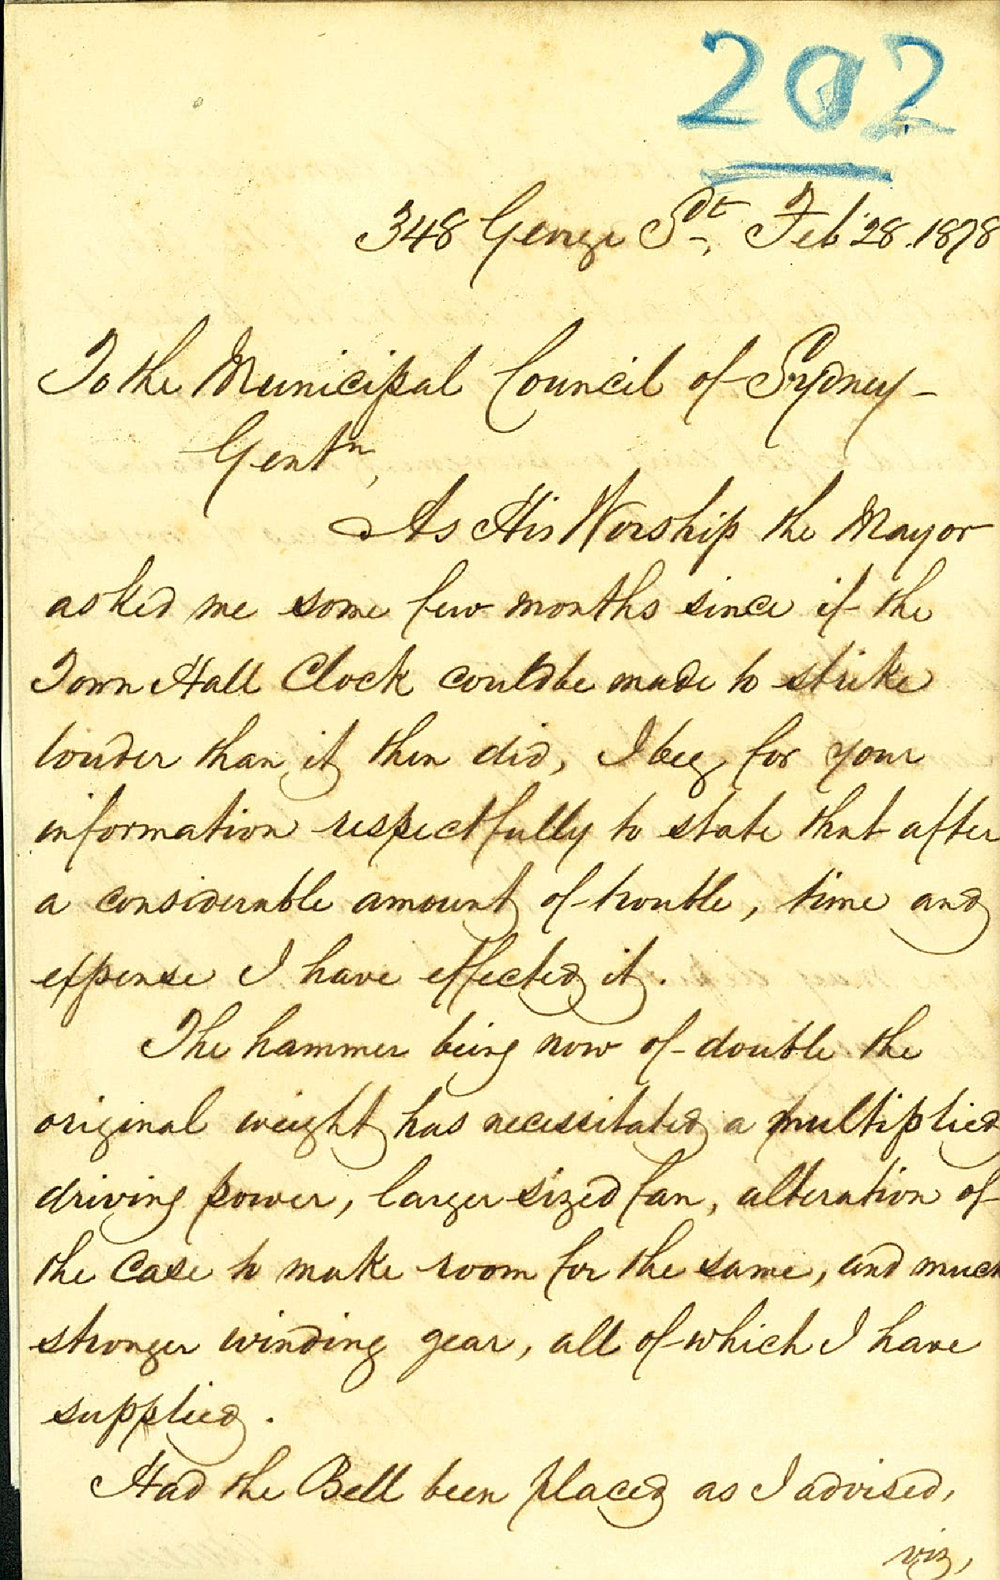 202
348 George St, Feb 28. 1878
To the Municipal Council of Sydney -
Gentn,
As His Worship the Mayor
asked me some few months since if the
Town Hall Clock could be made to strike
louder than it then did, I beg for your
information respectfully to state that after
a considerable amount of trouble, time and
expense I have effected it.
The hammer being now of double the
original weight has necessitated a multiplied
driving power, larger sized fan, alteration of
the case to make room for the same, and much
stronger winding gear, all of which I have
supplied.
Had the Bell been placed as I advised,
viz,